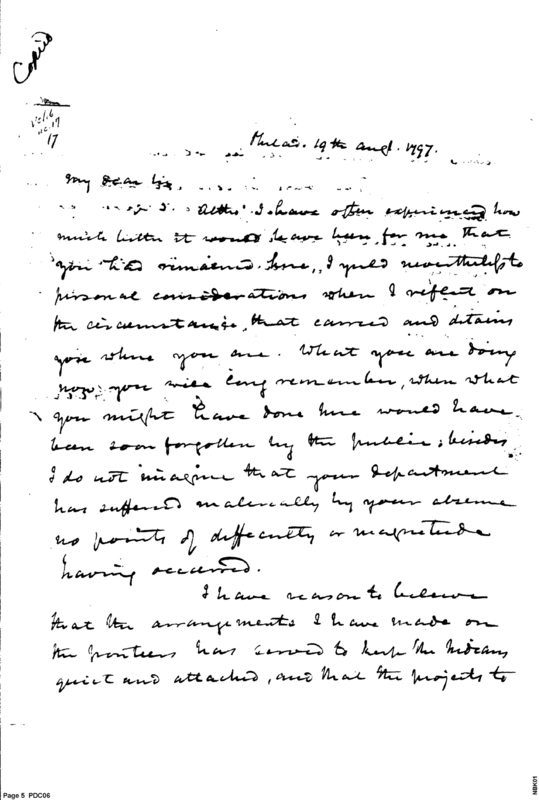 Copied
Vol. 6
no. 17
17
Philad. 19th augt. 1797.
My dear Sir,
Altho' I have often experienced how
much better it would have been for me that
you had remained here, I yield nevertheless to
personal considerations when I reflect on
the circumstance, that carried and detains
you where you are. What you are doing
now you will long remember, when what
you might have done here would have
been soon forgotten by the public; besides
I do not imagine that your department
has suffered materially by your absence
no points of difficulty or magnitude
having occurred.
I have reason to believe
that the arrangements I have made on
the frontiers has served to keep the Indians
quiet and attached, and that the projects to
Page 5 PDC06
NBK01